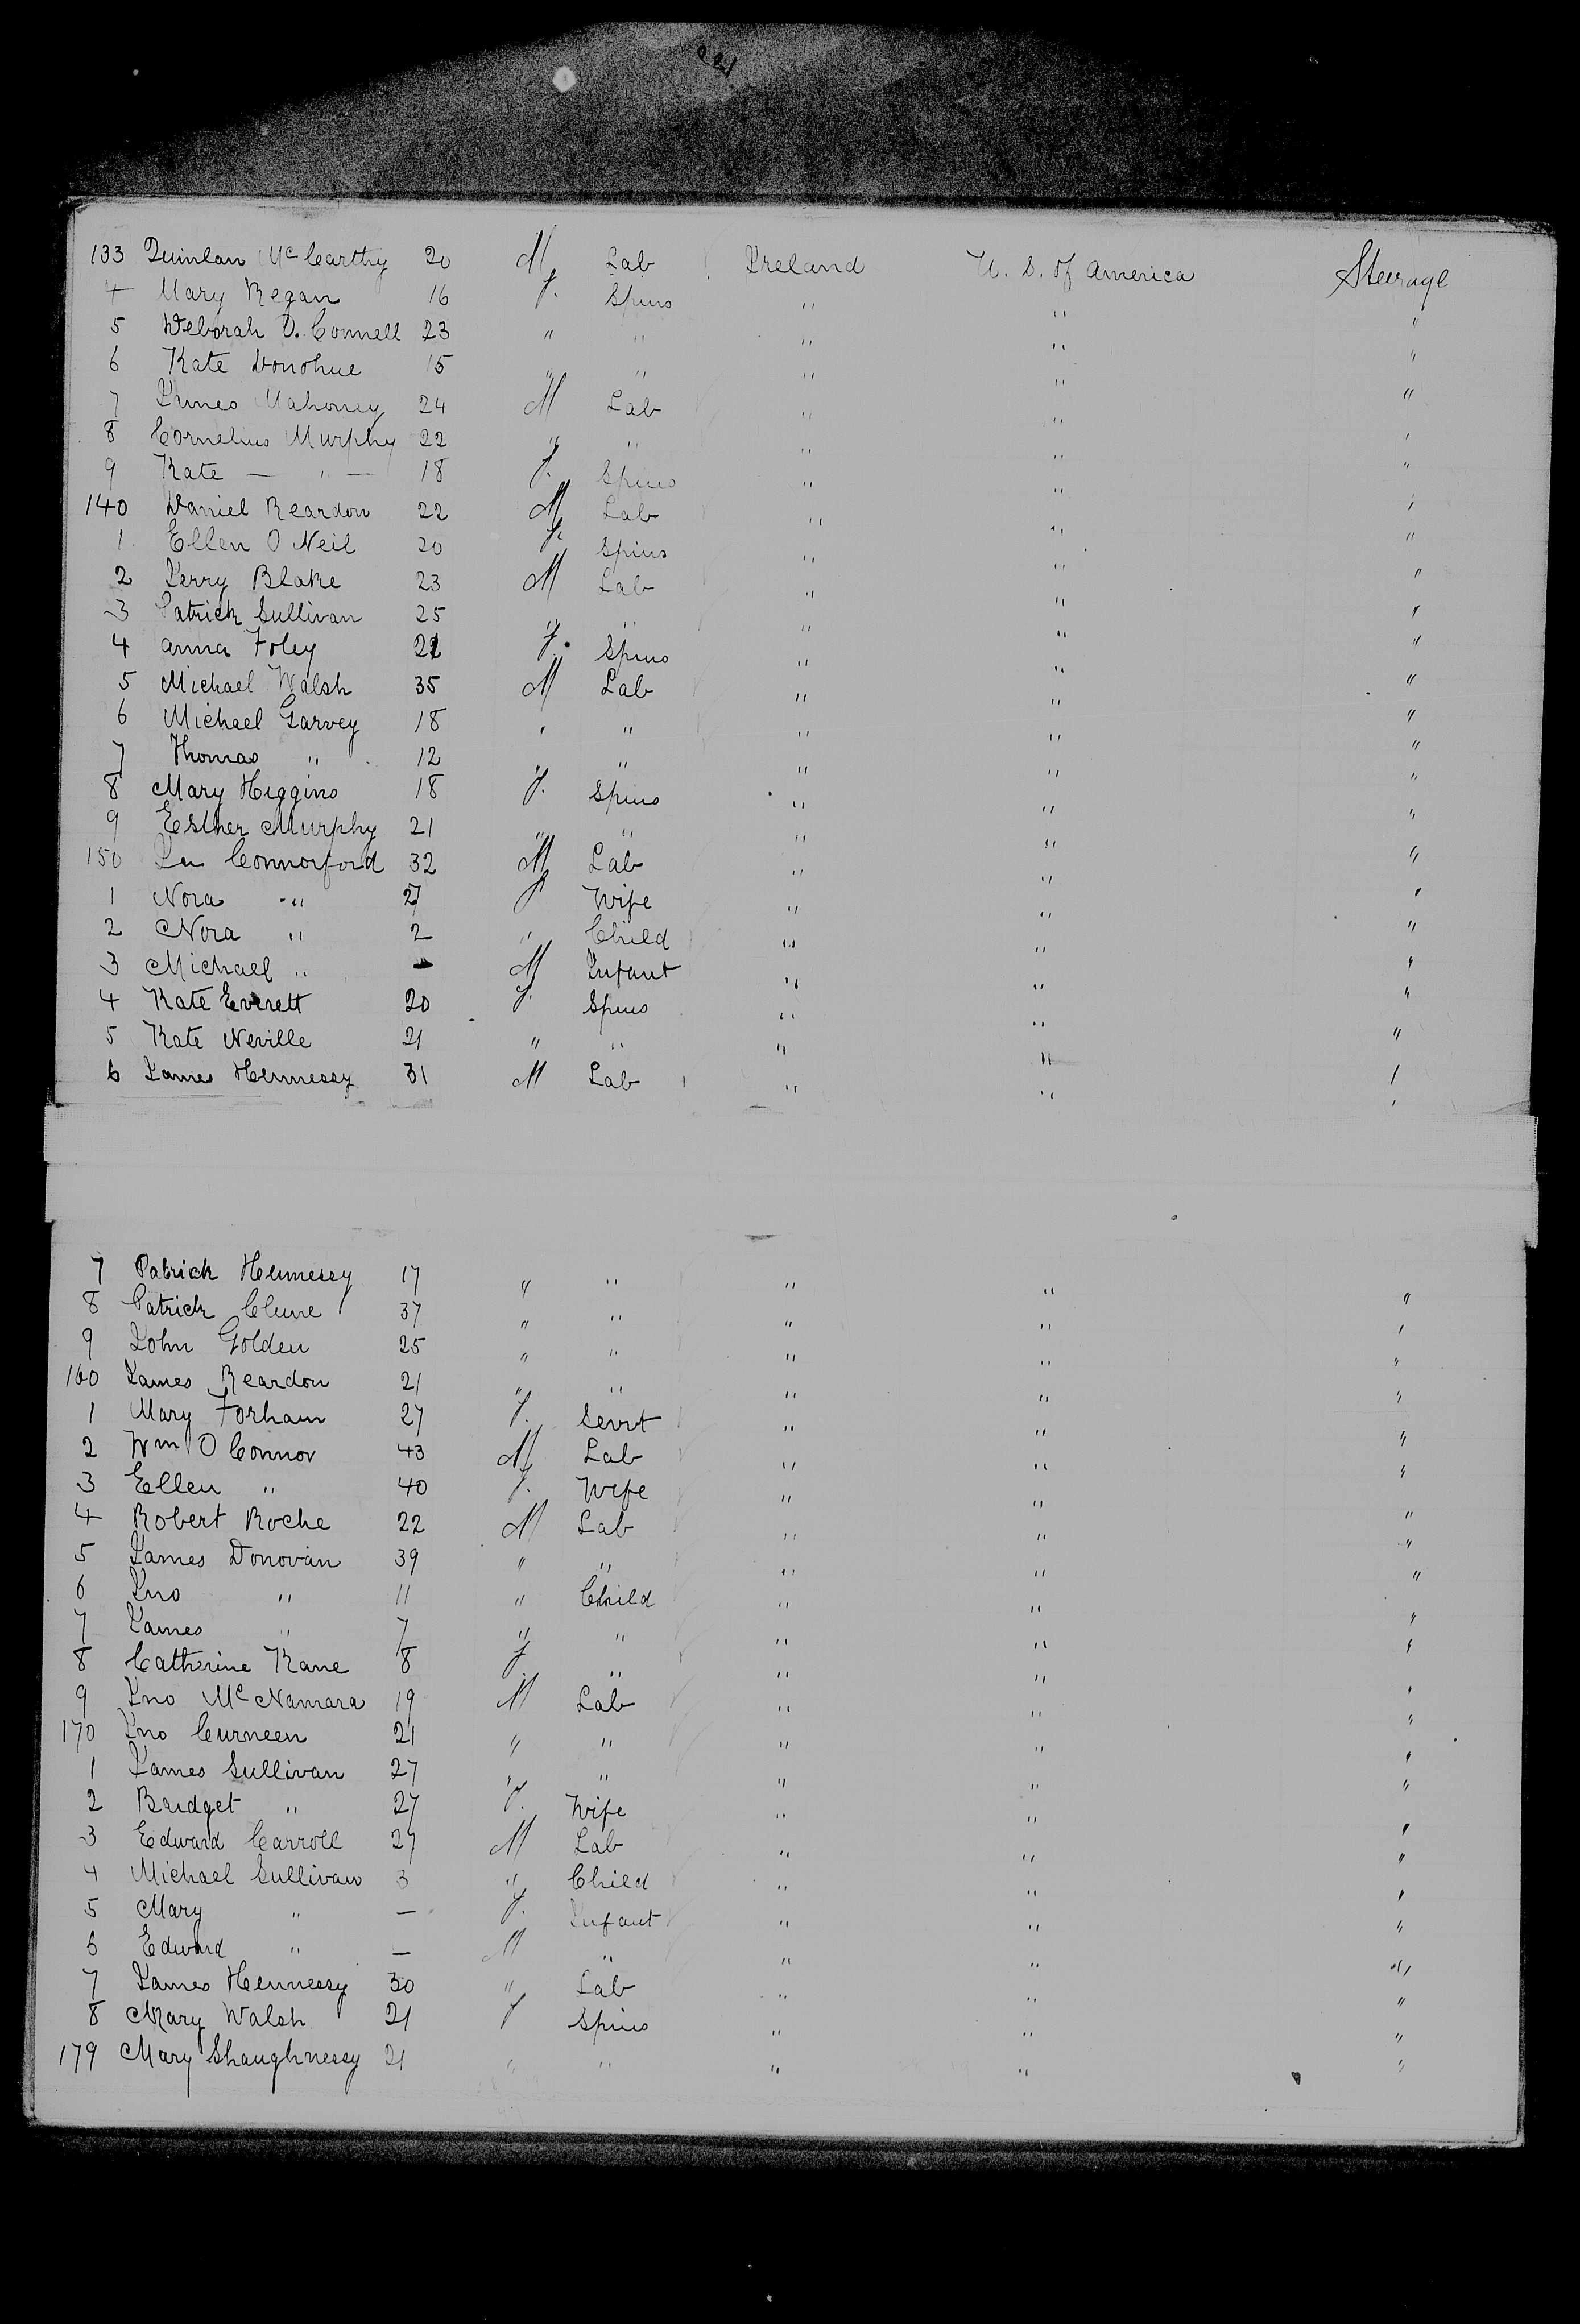 221
133 Quinlan McCarthy 20 M Lab Ireland U. S. of America Steerage
4 Mary Regan 16 f. Spins " " "
5 Deborah O. Connell 23 " " " " "
6 Kate Donohue 15 " " " " "
7 James Mahoney 24 M Lab " " "
8 Cornelius Murphy 22 " " " " "
9 Kate — " — 18 f. Spins " " "
140 Daniel Reardon 22 M Lab " " "
1 Ellen O Neil 20 f. Spins " " "
2 Jerry Blake 23 M Lab " " "
3 Patrick Sullivan 25 " " " " "
4 Anna Foley 21 f. Spins " " "
5 Michael Walsh 35 M Lab " " "
6 Michael Garvey 18 " " " " "
7 Thomas " 12 " " " " "
8 Mary Higgins 18 f. Spins " " "
9 Esther Murphy 21 " " " " "
150 Connorford 32 M Lab " " "
1 Nora " 27 f Wife " " "
2 Nora " 2 " Child " " "
3 Michael " — M Infant " " "
4 Kate Everett 20 f. Spins " " "
5 Kate Neville 21 " " " " "
6 James Hennessy 31 M Lab " " "
7 Patrick Hennessy 17 " " " " "
8 Patrick Clune 37 " " " " "
9 John Golden 25 " " " " "
160 James Reardon 21 " " " " "
1 Mary Forham 27 f. Servt " " "
2 Wm O Connor 43 M Lab " " "
3 Ellen " 40 f. Wife " " "
4 Robert Roche 22 M Lab " " "
5 James Donovan 39 " " " " "
6 Jno " 11 " Child " " "
7 James " 7 " " " " "
8 Catherine Kane 8 f " " " "
9 Jno McNamara 19 M Lab " " "
170 Jno Curneen 21 " " " " "
1 James Sullivan 27 " " " " "
2 Bridget " 27 f. Wife " " "
3 Edward Carroll 27 M Lab " " "
4 Michael Sullivan 3 " Child " " "
5 Mary " — f. Infant " " "
6 Edward " — M " " " "
7 James Hennessy 30 " Lab " " "
8 Mary Walsh 21 f Spins " " "
179 Mary Shaughnessy 21 " " " " "